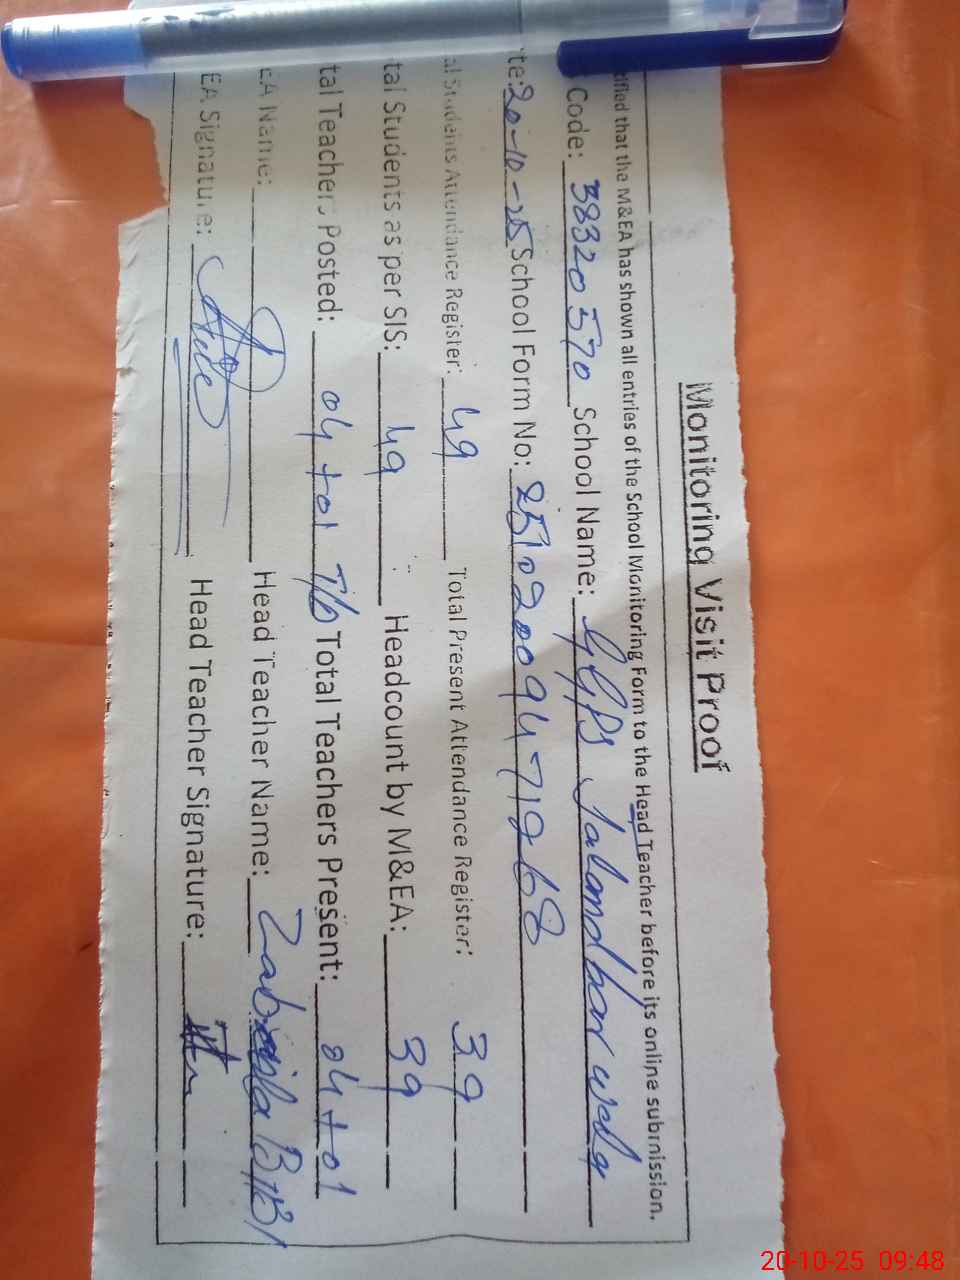 Monitoring Visit Proof
tified that the M&EA has shown all entries of the School Monitoring Form to the Head Teacher before its online submission.
Code: 38320570 School Name: GGPS Jalandhar
te: 20-10-25 School Form No:
al Students Attendance Register: 49 Total Present Attendance Register: 39
tal Students as per SIS: 49 Headcount by M&EA: 39
tal Teachers Posted: 04+01 Total Teachers Present: 04+01
EA Name: Head Teacher Name: BiBi
EA Signature: Head Teacher Signature:
20-10-25 09:48